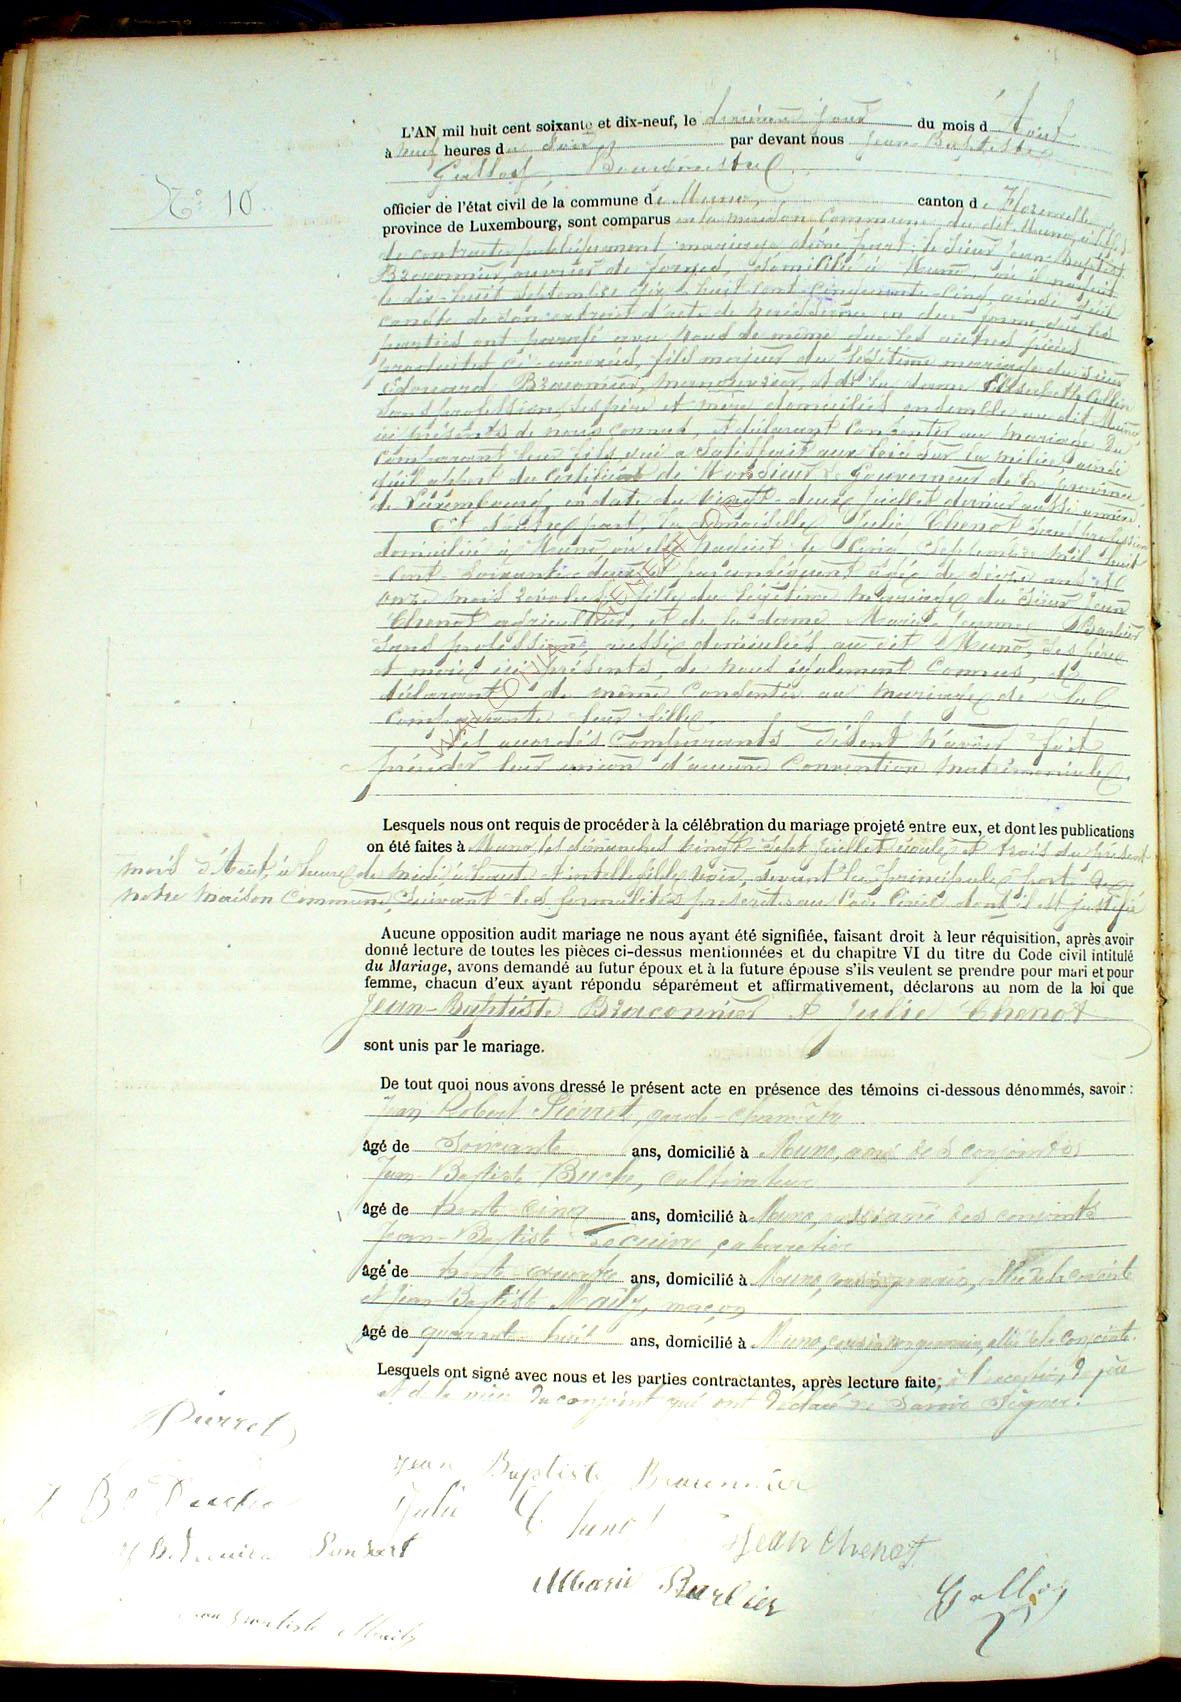 L'AN mil huit cent soixante et dix-neuf, le deuxième jour du mois d'Août
à neuf heures du soir par devant nous Jean-Baptiste
Bourgmestre
N° 10
officier de l'état civil de la commune de Muno, canton de Florenville
province de Luxembourg, sont comparus en la maison Commune du dit Muno,
de contracter publiquement mariage d'une part: le Sieur Jean-Baptiste
Braconnier, ouvrier de forges, domicilié à Muno, où il naquit
le dix-huit Septembre dix-huit cent cinquante-cinq, ainsi qu'il
conste de son extrait d'acte de naissance en due forme que les
parties ont parafé avec nous de même que les autres pièces
produites ci-annexées, fils majeur du légitime mariage du Sieur
Edouard Braconnier, manouvrier, et de la dame Elisabeth Collin
sans profession, ses père et mère domiciliés ensemble au dit Muno
ici présents de nous connus, et déclarant consentir au mariage du
Comparant leur fils, qui a satisfait aux lois sur la milice, ainsi
qu'il appert du Certificat de Monsieur le Gouverneur de la province
de Luxembourg, en date du vingt-deux Juillet dernier aussi annexé.
Et d'autre part, la demoiselle Julie Chenot sans profession
domiciliée à Muno, où elle naquit le cinq Septembre mil-huit
-cent-soixante-deux et par conséquent âgée de seize ans et
onze mois révolus, fille du légitime mariage du Sieur Jean
Chenot agriculteur, et de la dame Marie-Jeanne Barbier
sans profession, aussi domiciliés au dit Muno, ses père
et mère ici présents, de nous également connus, et
déclarant de même consentir au mariage de la
Comparante leur fille.
Les accordés comparants disent n'avoir fait
précéder leur union d'aucune Convention matrimoniale.
Lesquels nous ont requis de procéder à la célébration du mariage projeté entre eux, et dont les publications
on été faites à Muno les dimanches vingt-sept juillet écoulé et trois du présent
mois d'Août, à heure de midi, à haute et intelligible voix, devant la principale porte de
notre maison Commune, suivant les formalités prescrites au Code Civil dont il est justifié
Aucune opposition audit mariage ne nous ayant été signifiée, faisant droit à leur réquisition, après avoir
donné lecture de toutes les pièces ci-dessus mentionnées et du chapitre VI du titre du Code civil intitulé
du Mariage, avons demandé au futur époux et à la future épouse s'ils veulent se prendre pour mari et pour
femme, chacun d'eux ayant répondu séparément et affirmativement, déclarons au nom de la loi que
Jean-Baptiste Braconnier et Julie Chenot
sont unis par le mariage.
De tout quoi nous avons dressé le présent acte en présence des témoins ci-dessous dénommés, savoir :
Jean-Robert Pierret, garde-
âgé de soixante ans, domicilié à Muno, ami des conjoints
Jean-Baptiste Buche, cultivateur
âgé de trente-cinq ans, domicilié à Muno, des conjoints
Jean-Baptiste Lecuivre, cabaretier
âgé de trente ans, domicilié à Muno, cousin germain, allié de la conjointe
et Jean-Baptiste Mailly, maçon
âgé de quarante huit ans, domicilié à Muno, cousin germain, allié de la conjointe.
Lesquels ont signé avec nous et les parties contractantes, après lecture faite, à l'exception du père
et de la mère du conjoint qui ont déclaré ne savoir signer.
Pierret
Jean Baptiste Braconnier
Julie Chenot
Jean Chenot
Marie Barbier
Jean Baptiste Mailly